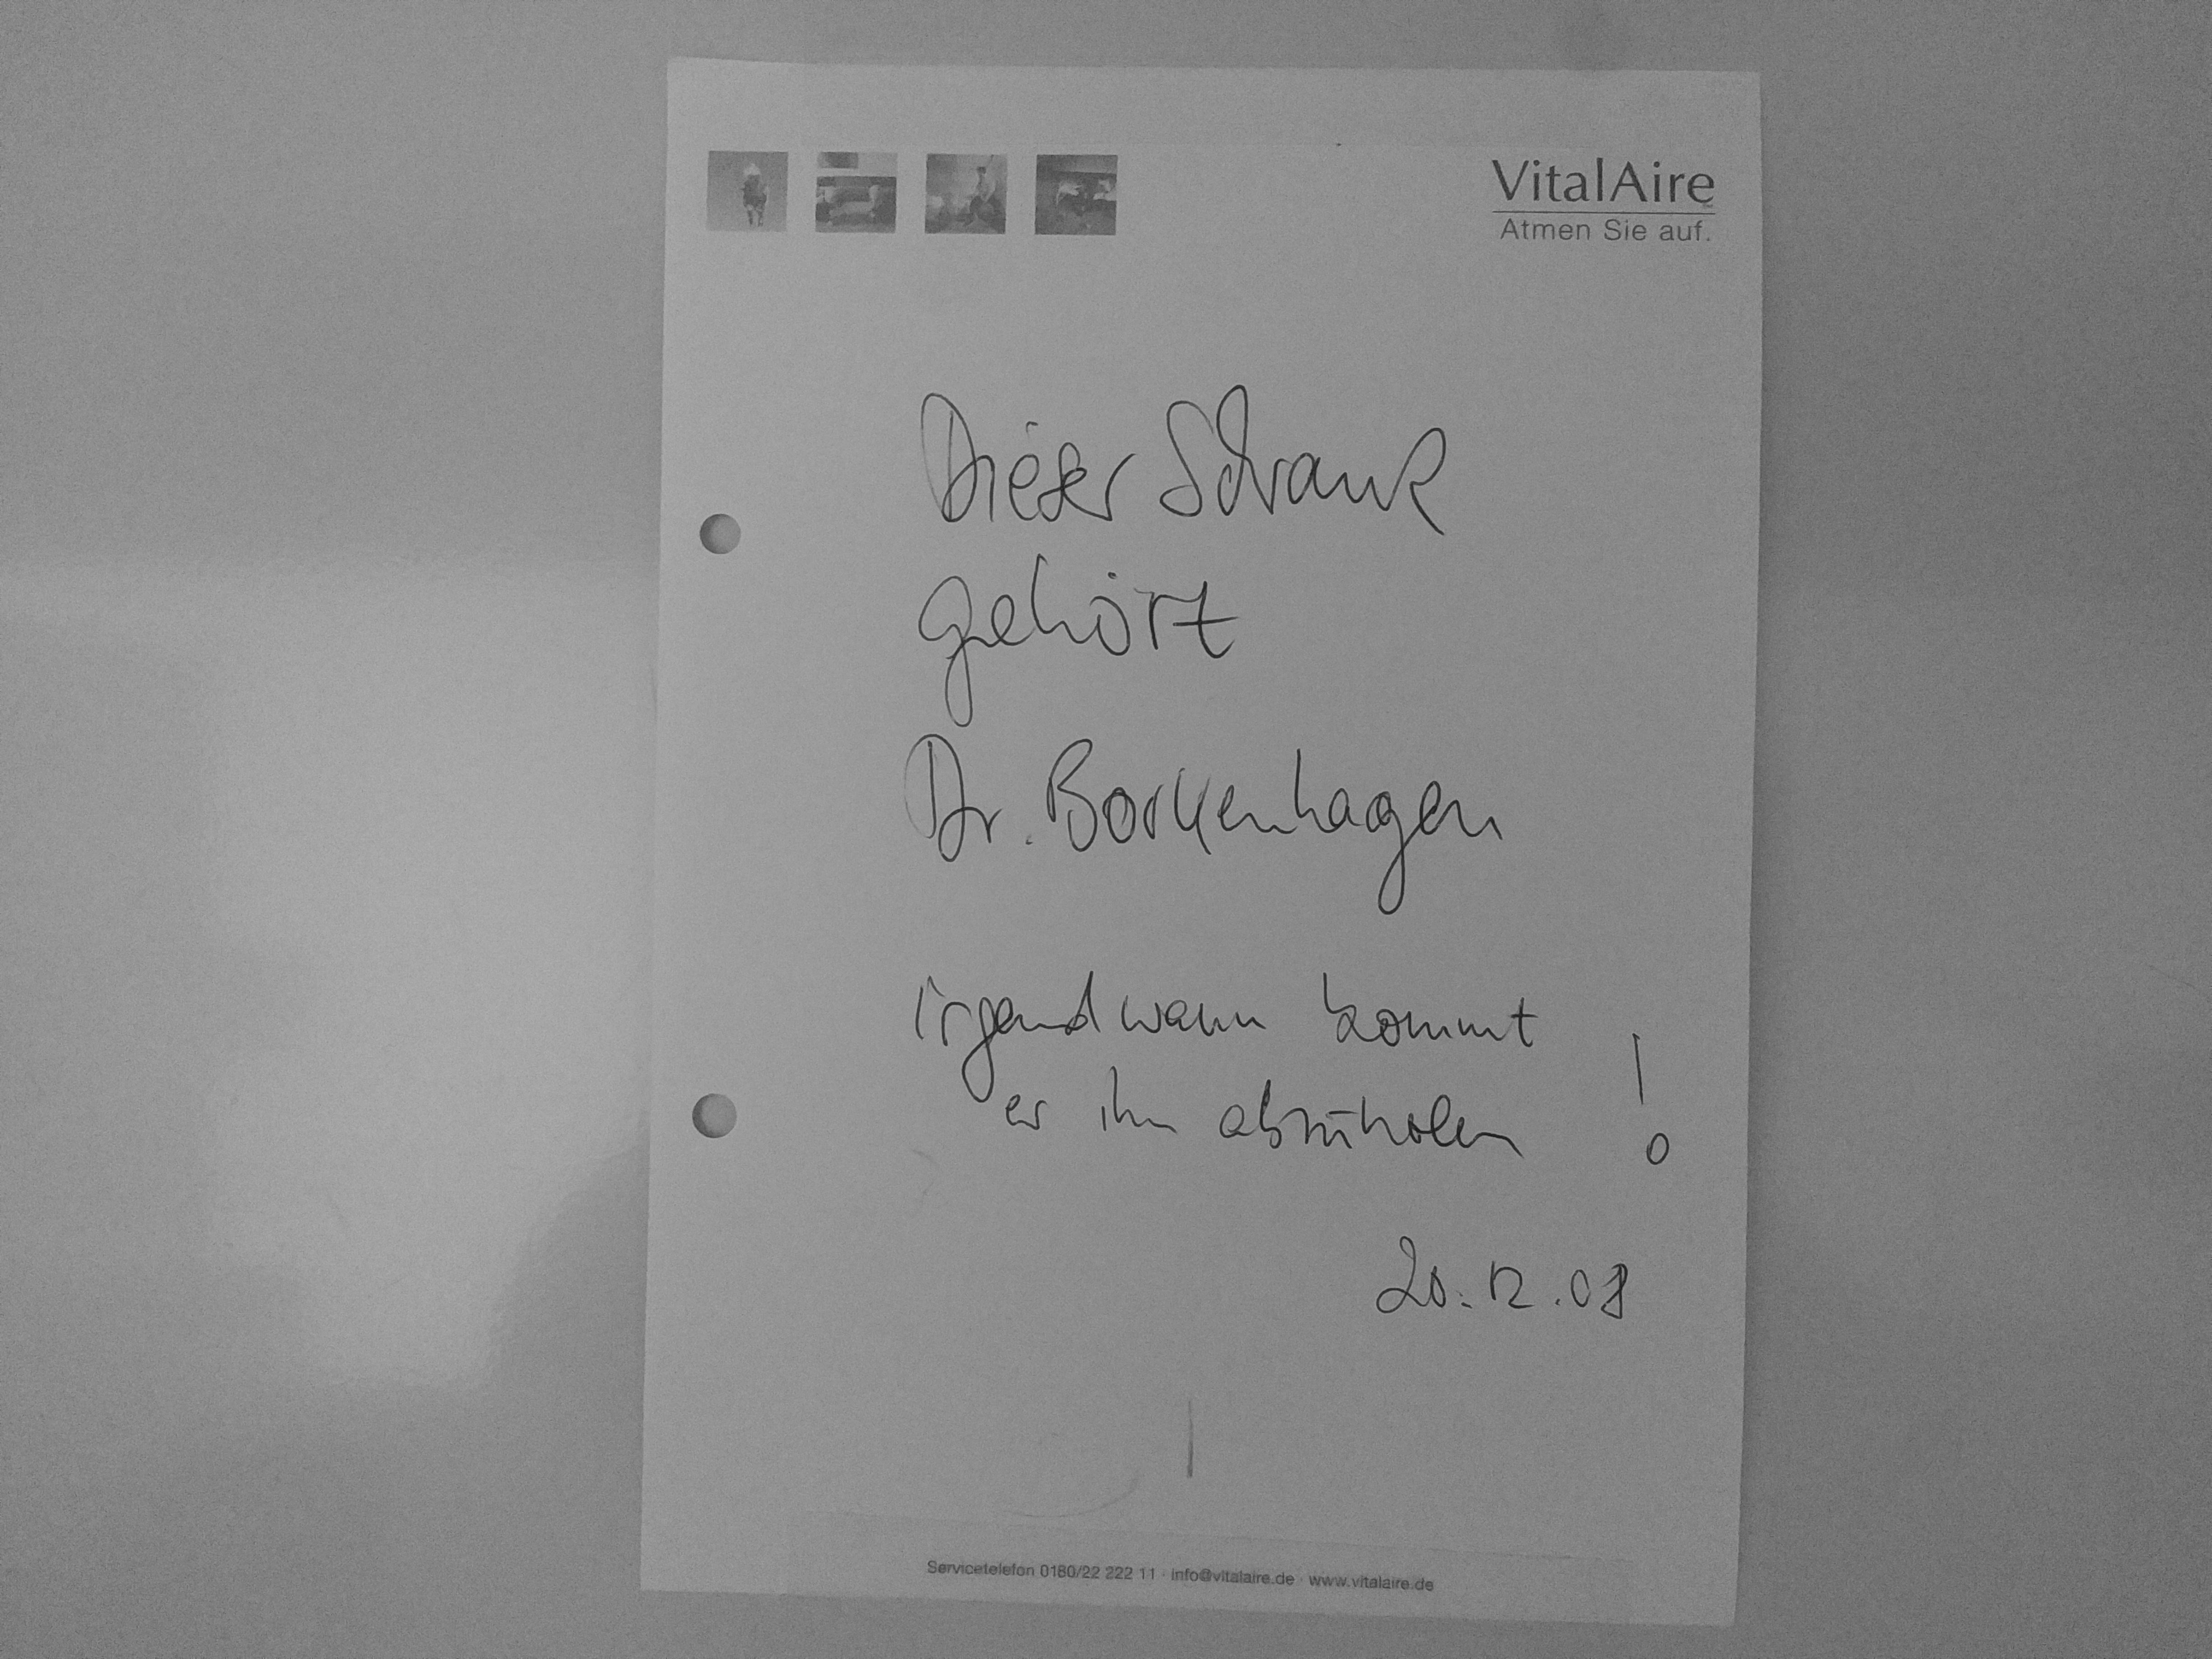 VitalAire
Atmen Sie auf.
Dieser Schrank
gehört
Dr. Borkenhagen
irgendwann kommt
er ihn abzuholen !
20.12.08
Servicetelefon 0180/22 222 11 · info@vitalaire.de · www.vitalaire.de